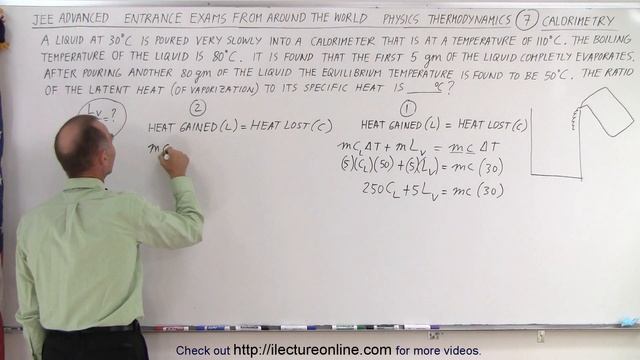 JEE ADVANCED ENTRANCE EXAMS FROM AROUND THE WORLD PHYSICS THERMODYNAMICS 7 CALORIMETRY
A LIQUID AT 30°C IS POURED VERY SLOWLY INTO A CALORIMETER THAT IS AT A TEMPERATURE OF 110°C. THE BOILING
TEMPERATURE OF THE LIQUID IS 80°C. IT IS FOUND THAT THE FIRST 5 gm OF THE LIQUID COMPLETLY EVAPORATES.
AFTER POURING ANOTHER 80 gm OF THE LIQUID THE EQUILIBRIUM TEMPERATURE IS FOUND TO BE 50°C. THE RATIO
OF THE LATENT HEAT (OF VAPORIZATION) TO ITS SPECIFIC HEAT IS ____ °C ?
Lv = ?
2
HEAT GAINED (L) = HEAT LOST (C)
m
1
HEAT GAINED (L) = HEAT LOST (C)
m C_L ΔT + m L_V = m c ΔT
(5)(C_L)(50) + (5)(L_V) = m c (30)
250 C_L + 5 L_V = m c (30)
Check out http://ilectureonline.com for more videos.